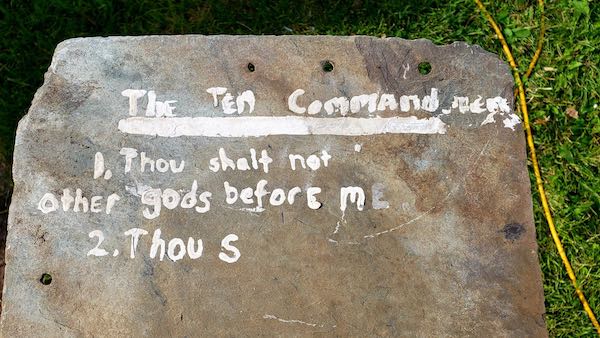 The Ten Commandmen
1. Thou shalt not
other gods before me
2. Thou s